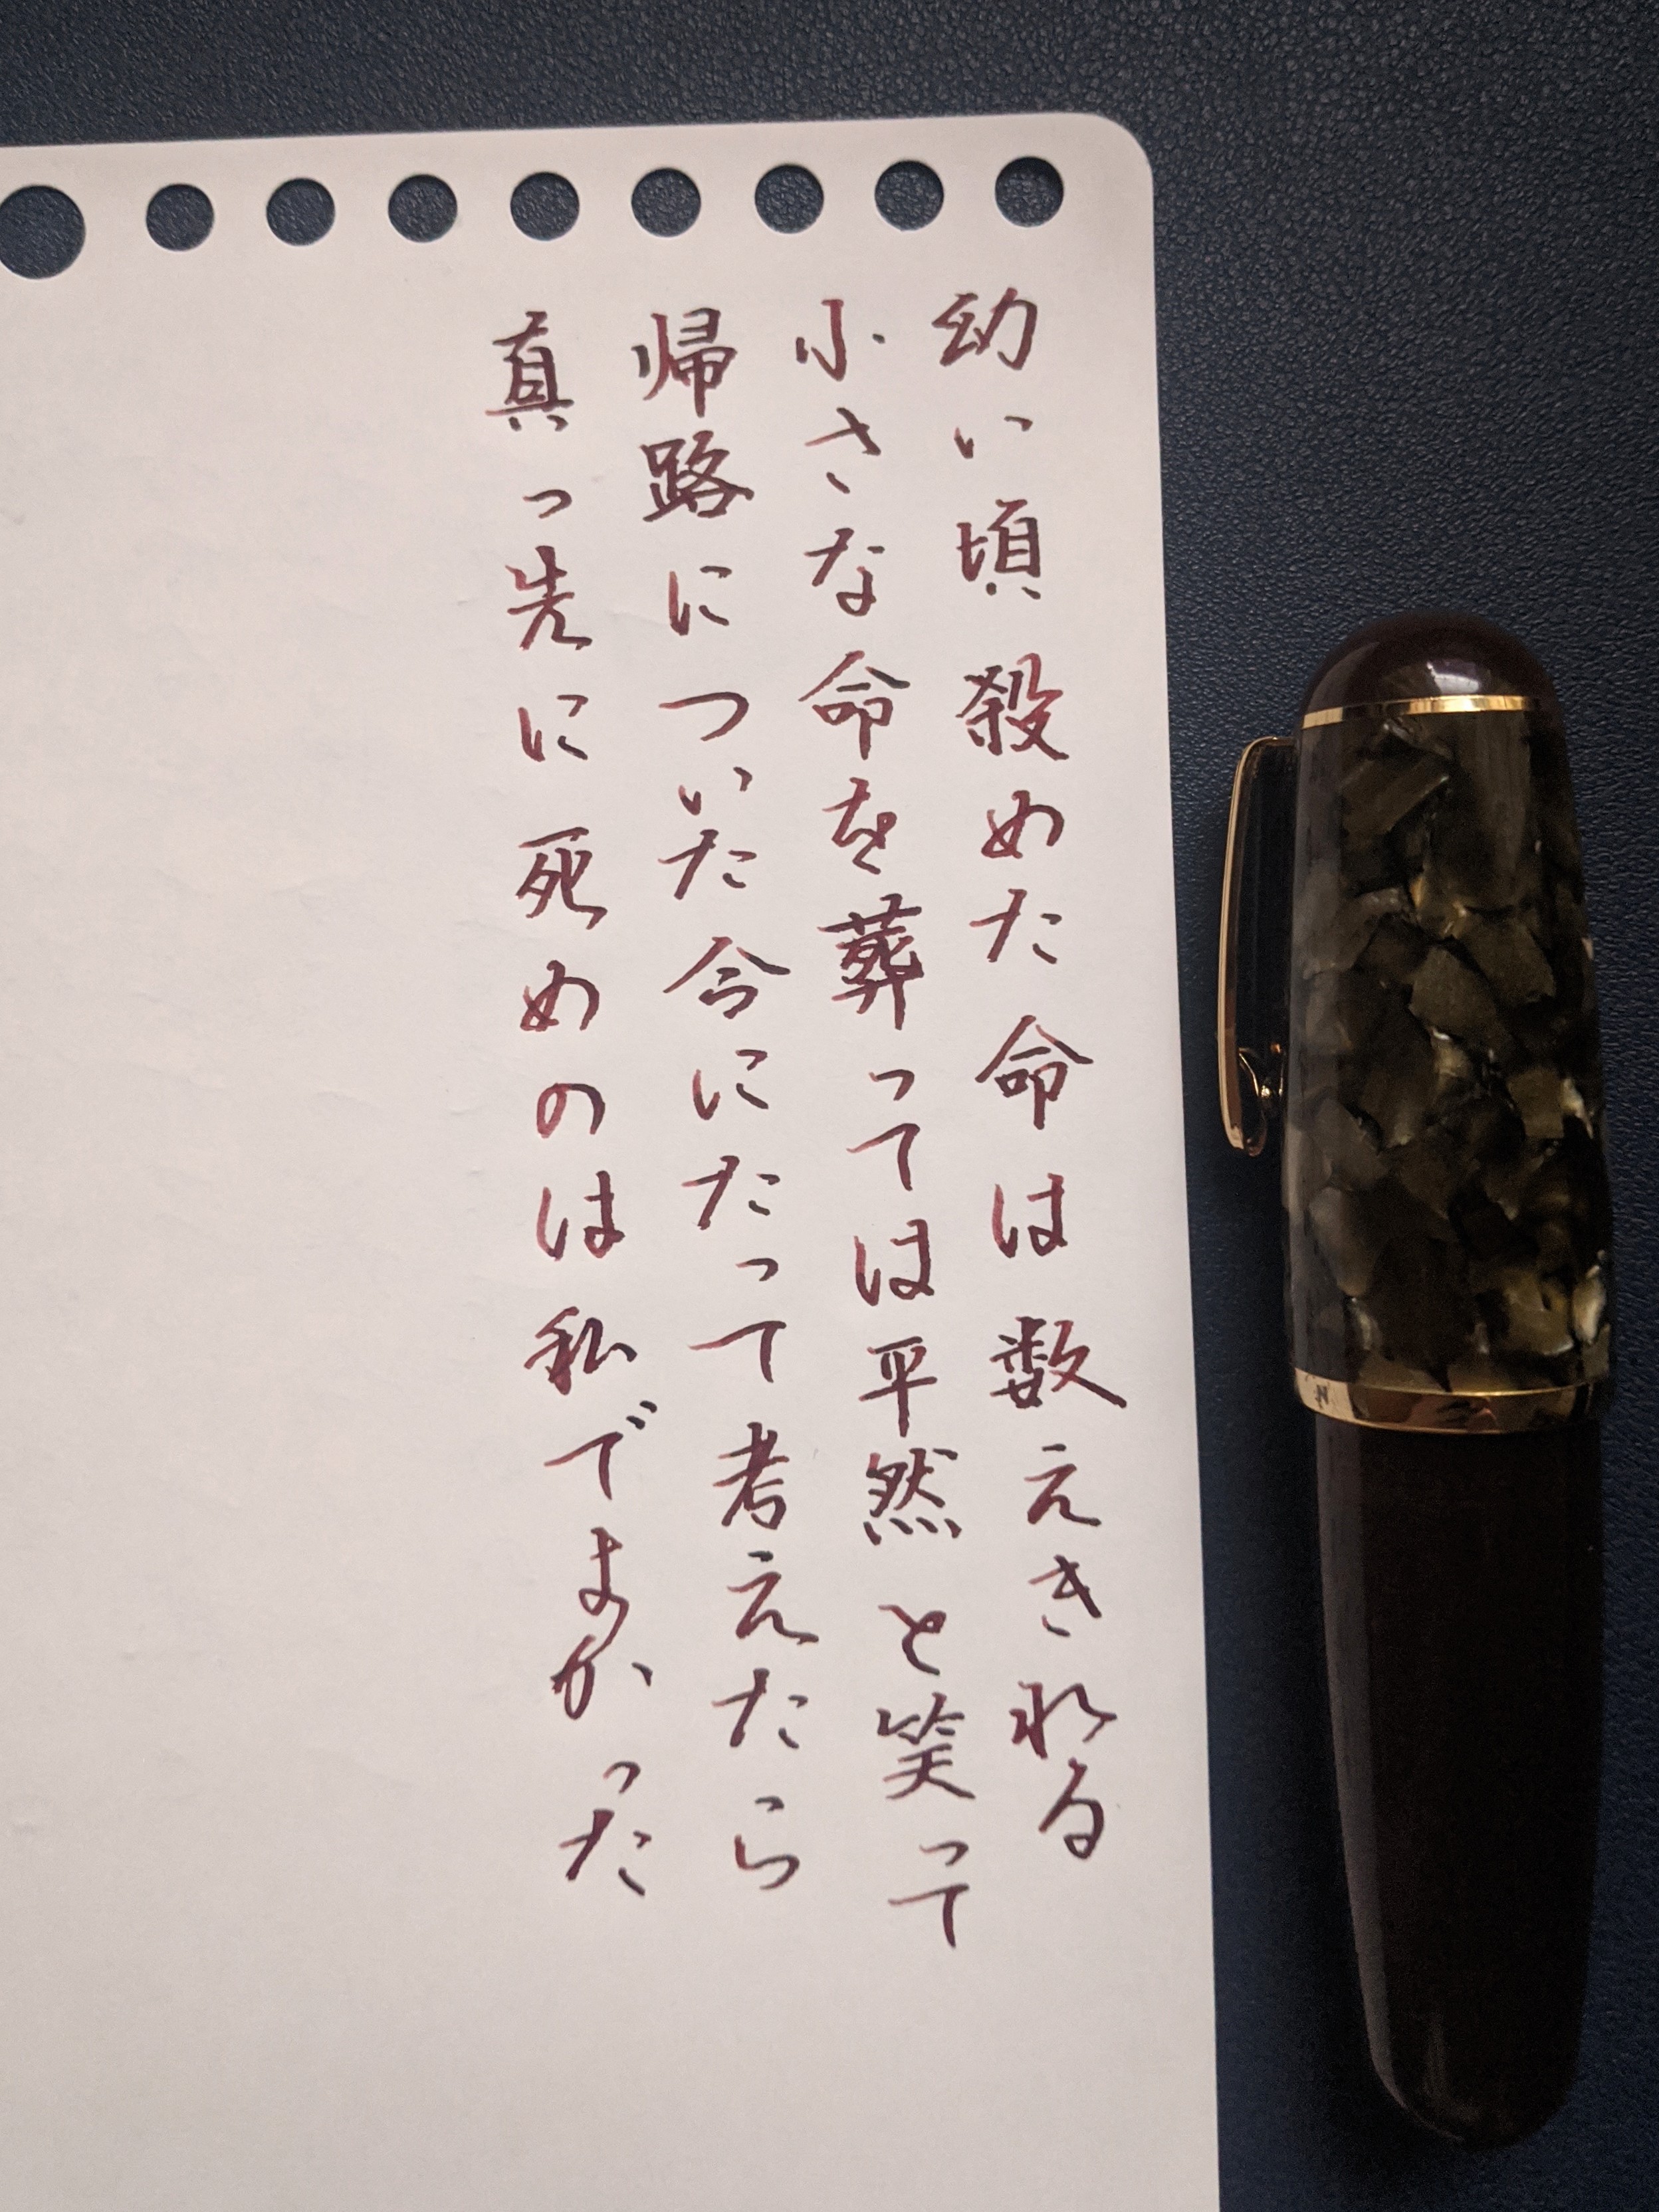 幼い頃殺めた命は数えきれる
小さな命を葬っては平然と笑って
帰路についた今にたって考えたら
真っ先に死めのは私でまかった